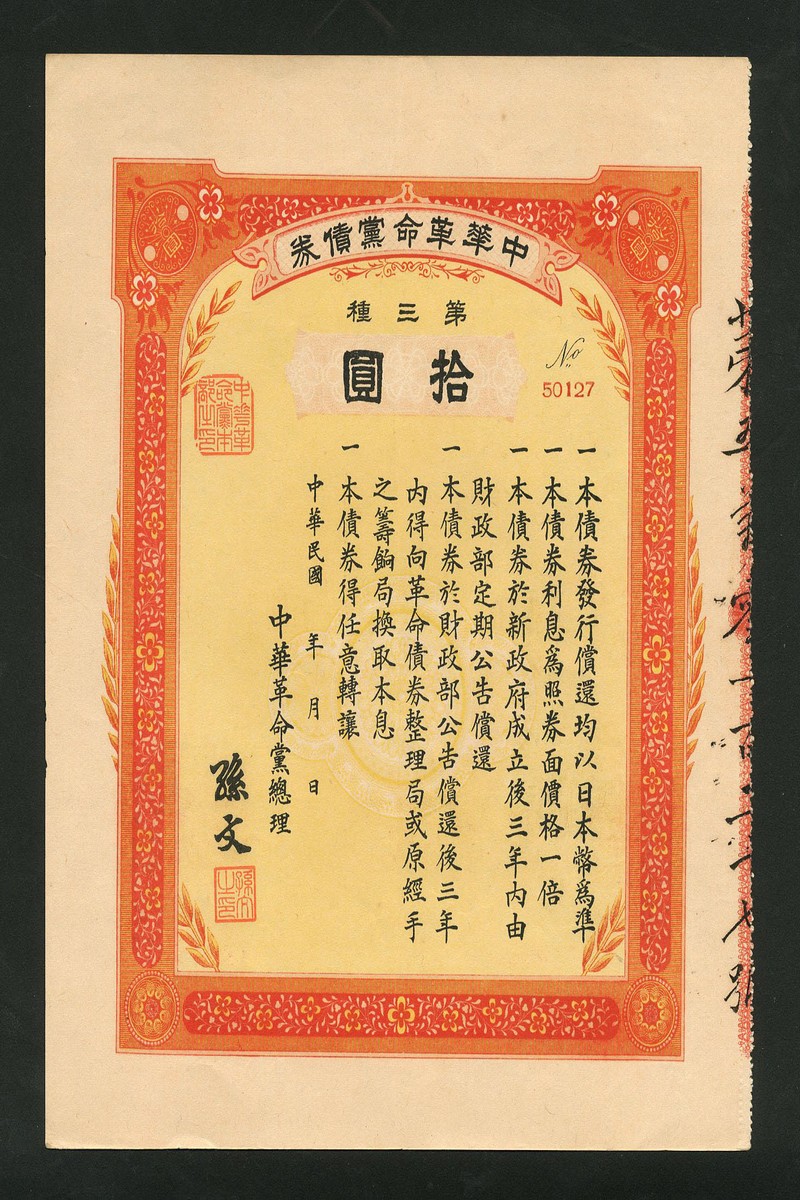 中華革命黨債券
第三種
拾圓
No
50127
一本債券發行償還均以日本幣為準
一本債券利息為照券面價格一倍
一本債券於新政府成立後三年內由
財政部定期公告償還
一本債券於財政部公告償還後三年
內得向革命債券整理局或原經手
之籌餉局換取本息
一本債券得任意轉讓
中華民國 年 月 日
中華革命黨總理
孫文
中華革命黨本部之印
孫文之印